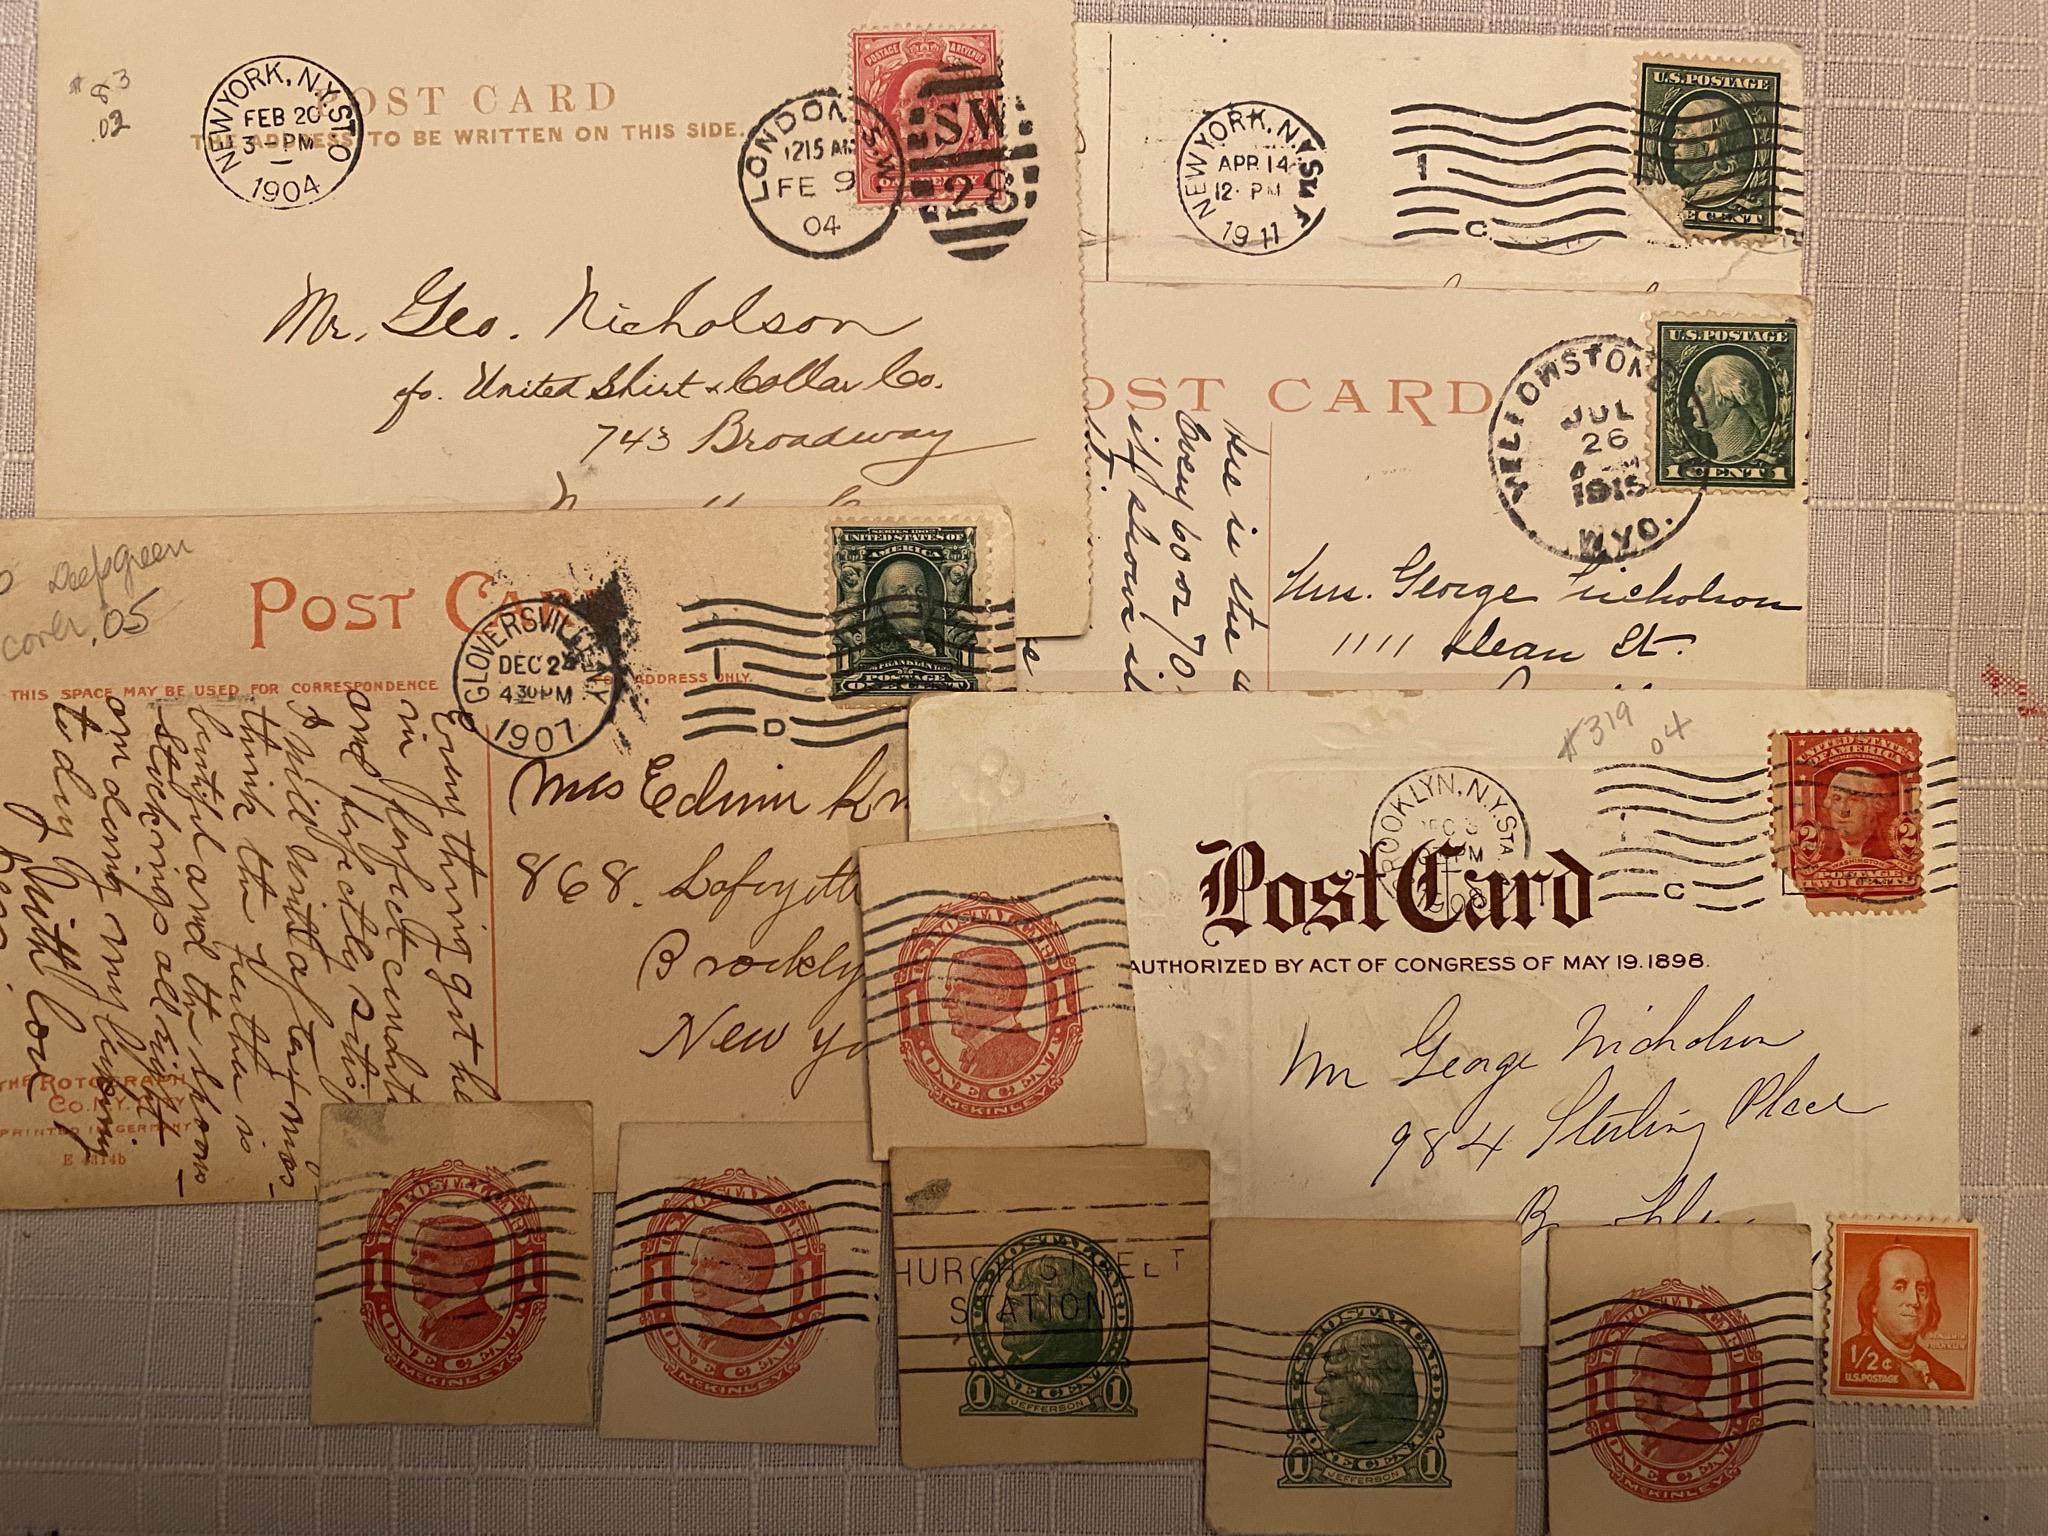 # 83
.02
NEW YORK, N.Y. STA O
FEB 20
3-PM
1904
POST CARD
THE ADDRESS TO BE WRITTEN ON THIS SIDE.
LONDON. S.W.
1215 AM
FE 9
04
POSTAGE & REVENUE
ONE PENNY
S.W
28
Mr. Geo. Nicholson
c/o. United Shirt & Collar Co.
743 Broadway
NEW YORK, N.Y. STA F
APR 14
12 PM
1911
1
C
U.S. POSTAGE
CENT
POST CARD
YELLOWSTONE
JUL
26
1915
WYO.
U.S. POSTAGE
1 CENT 1
Here is the
Every 60 or 70
it shows
Mrs. George Nicholson
1111 Dean St.
Deep green
corner, .05
POST CARD
GLOVERSVILLE, N.Y.
DEC 2
4 30 PM
1907
1
D
SERIES 1902
UNITED STATES OF
AMERICA
1 FRANKLIN 1
POSTAGE
ONE CENT
THIS SPACE MAY BE USED FOR CORRESPONDENCE
ADDRESS ONLY.
Every thing got he
in perfect condit
and perfectly
I will write after
think the is
and the
stockings all right
on during my
to day With love
THE ROTOGRAPH
CO. N.Y. CITY
PRINTED IN GERMANY
Mrs Edwin Kn
868. Lafayette
Brookly
New Yo
#319
04
BROOKLYN, N.Y. STA.
DEC 3
PM
C
UNITED STATES
OF AMERICA
2 2
WASHINGTON
POSTAGE
TWO CENTS
Post Card
AUTHORIZED BY ACT OF CONGRESS OF MAY 19. 1898.
Mr George Nicholson
984 Sterling Place
U.S. POSTAL CARD
1 1
ONE CENT
MCKINLEY
U.S. POSTAL CARD
1 1
ONE CENT
MCKINLEY
U.S. POSTAL CARD
1 1
ONE CENT
MCKINLEY
HURCH STREET
STATION
U.S. POSTAL CARD
1 ONE CENT 1
JEFFERSON
U.S. POSTAL CARD
1 ONE CENT 1
JEFFERSON
U.S. POSTAL CARD
1 1
ONE CENT
MCKINLEY
BENJAMIN
FRANKLIN
1/2¢
U.S. POSTAGE